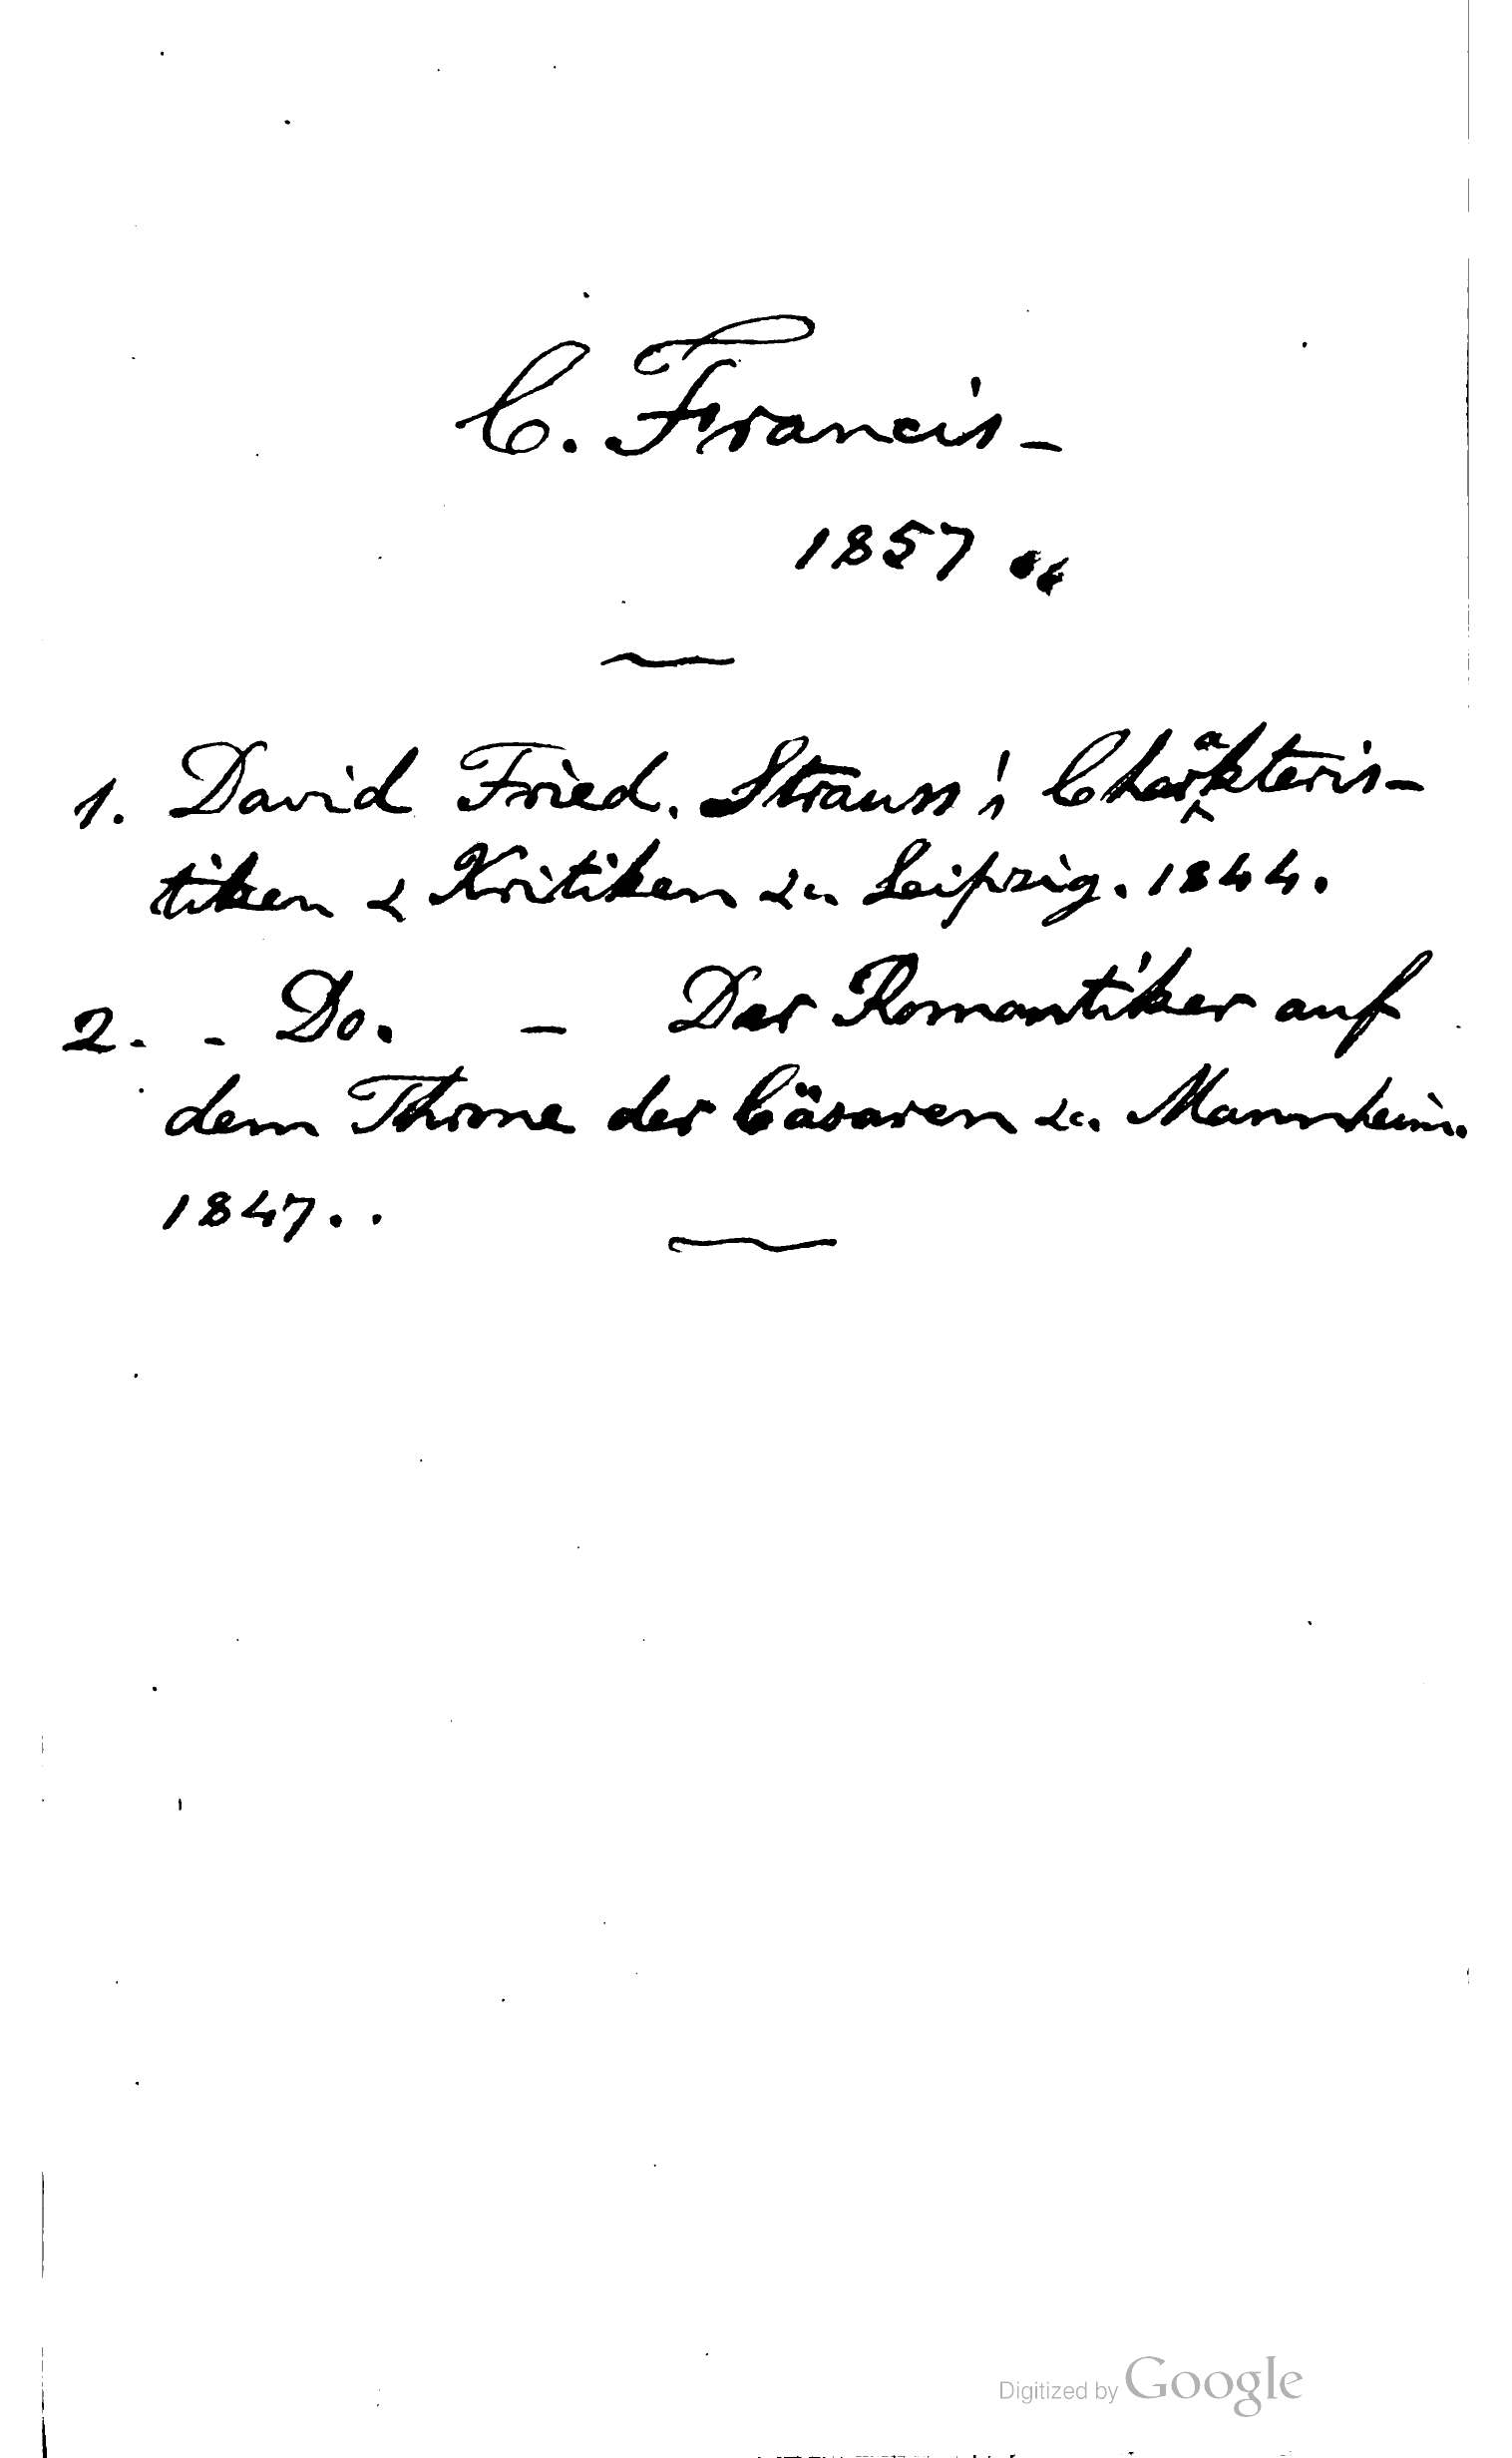 C. Francis-
1857 "
1. David Fried. Strauss's Charakteris-
tiken & Kritiken &c. Leipzig. 1844.
2. - Do. - Der Romantiker auf
dem Throne der Cäsaren &c. Mannheim.
1847..
Digitized by Google